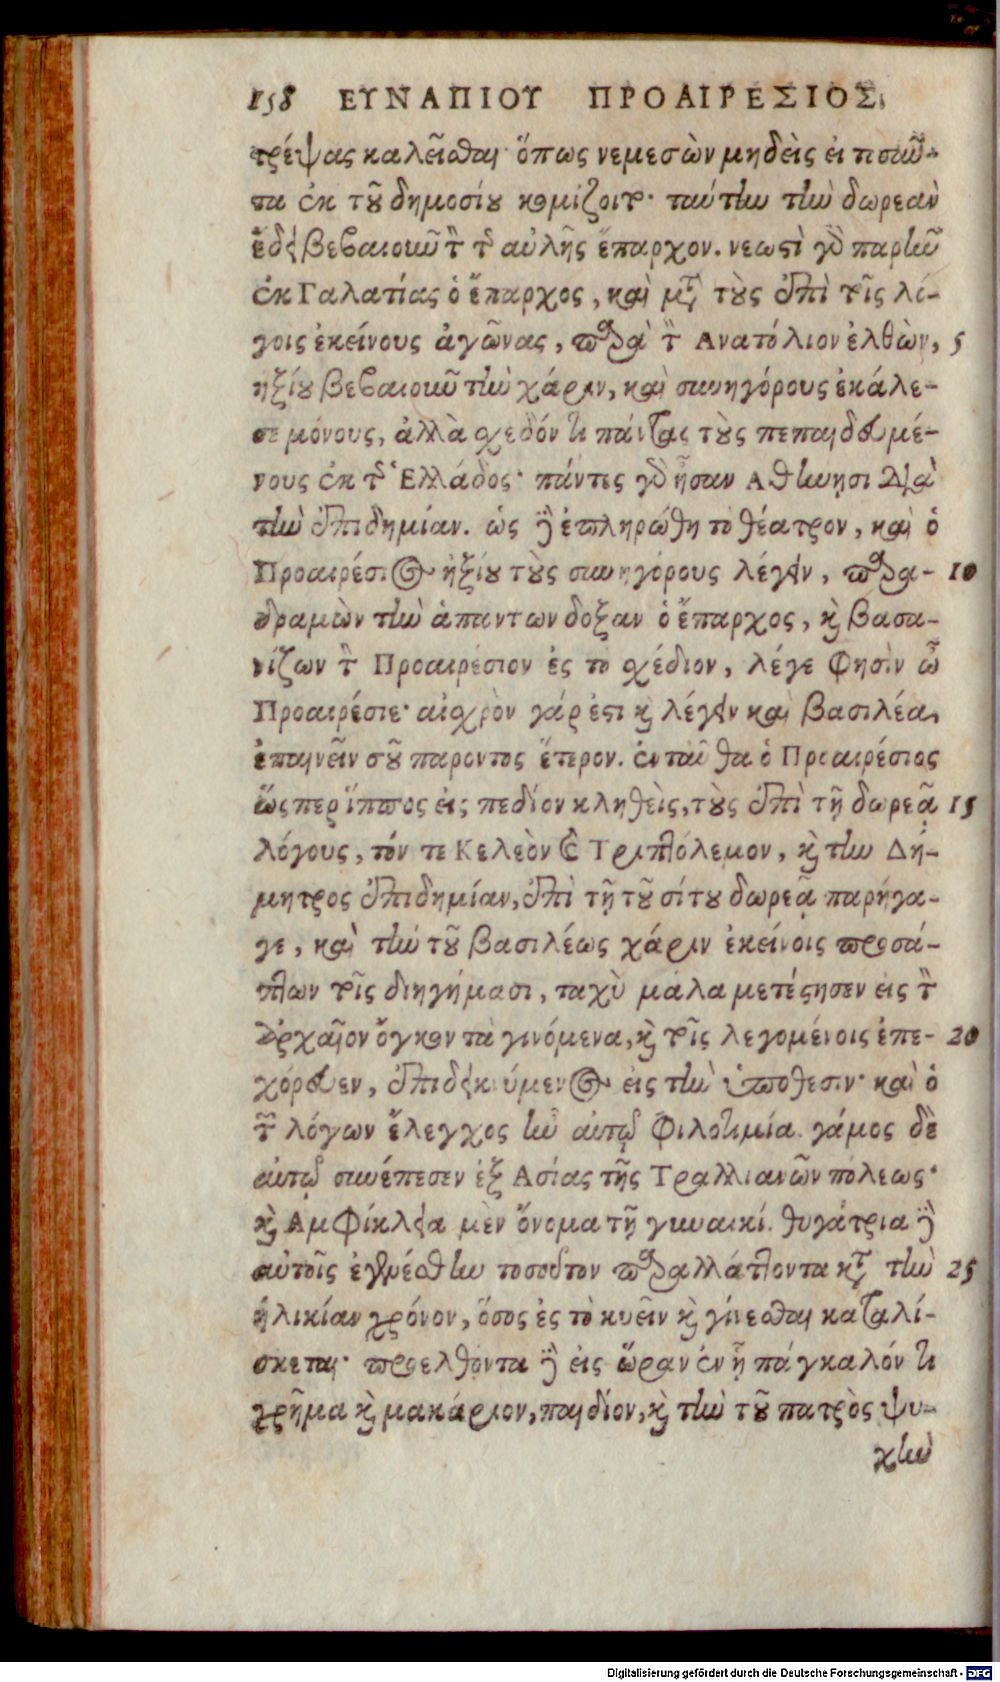 158 ΕΥΝΑΠΙΟΥ ΠΡΟΑΙΡΕΣΙΟΣ.
τρέψας καλεῖσθαι· ὅπως νεμεσῶν μηδεὶς εἰ
τα ἐκ τοῦ δημοσίου κομίζοιτο· ταύτην τὴν δωρεὰν
ἔδει βεβαιοῦν τὸν τῆς αὐλῆς ἔπαρχον. νεωστὶ γὰρ παρῆν
ἐκ Γαλατίας ὁ ἔπαρχος, καὶ μετὰ τοὺς ἐπὶ τοῖς λό-
γοις ἐκείνους ἀγῶνας, παρὰ τὸν Ἀνατόλιον ἐλθὼν, 5
ἠξίου βεβαιοῦν τὴν χάριν, καὶ συνηγόρους ἐκάλε-
σε μόνους, ἀλλὰ σχεδόν τι πάντας τοὺς πεπαιδευμέ-
νους ἐκ τῆς Ἑλλάδος· πάντες γὰρ ἦσαν Ἀθήνησι διὰ
τὴν ἐπιδημίαν. ὡς δὲ ἐπληρώθη τὸ θέατρον, καὶ ὁ
Προαιρέσιος ἠξίου τοὺς συνηγόρους λέγειν, παρα- 10
δραμὼν τὴν ἁπάντων δόξαν ὁ ἔπαρχος, καὶ βασα-
νίζων τὸν Προαιρέσιον ἐς τὸ σχέδιον, λέγε φησὶν ὦ
Προαιρέσιε· αἰσχρὸν γάρ ἐστι καὶ λέγειν καὶ βασιλέα,
ἐπαινεῖν σοῦ παρόντος ἕτερον. ἐνταῦθα ὁ Προαιρέσιος
ὥσπερ ἵππος εἰς πεδίον κληθεὶς, τοὺς ἐπὶ τῇ δωρεᾷ 15
λόγους, τόν τε Κελεὸν καὶ Τριπτόλεμον, καὶ τὴν Δή-
μητρος ἐπιδημίαν, ἐπὶ τῇ τοῦ σίτου δωρεᾷ παρήγα-
γε, καὶ τὴν τοῦ βασιλέως χάριν ἐκείνοις προσά-
πτων τοῖς διηγήμασι, ταχὺ μάλα μετέστησεν εἰς τὸν
ἀρχαῖον ὄγκον τὰ γινόμενα, καὶ τοῖς λεγομένοις ἐπε- 20
χόρευεν, ἐπιδεικνύμενος εἰς τὴν ὑπόθεσιν· καὶ ὁ
τῶν λόγων ἔλεγχος ἦν αὐτῷ φιλοτιμία. γάμος δὲ
αὐτῷ συνέπεσεν ἐξ Ἀσίας τῆς Τραλλιανῶν πόλεως·
καὶ Ἀμφίκλεια μὲν ὄνομα τῇ γυναικί. θυγάτρια δὲ
αὐτοῖς ἐγενέσθην τοσοῦτον παραλλάττοντα κατὰ τὴν 25
ἡλικίαν χρόνον, ὅσος ἐς τὸ κυεῖν καὶ γίνεσθαι καταλί-
σκεται· προελθόντα δὲ εἰς ὥραν ἐν ᾗ πάγκαλόν τι
χρῆμα καὶ μακάριον, παιδίον, καὶ τὴν τοῦ πατρὸς ψυ-
χὴν
Digitalisierung gefördert durch die Deutsche Forschungsgemeinschaft - DFG